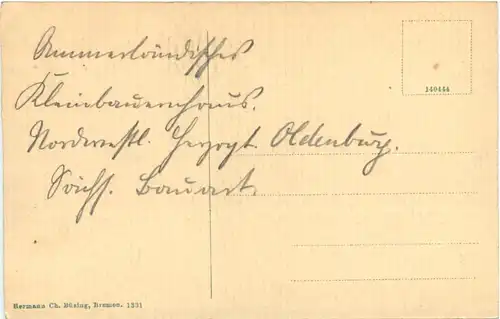 Ammerländisches
140444
Kleinbauernhaus.
Nordwestl. Herzogt. Oldenburg.
Sächs. Bauart.
Hermann Ch. Büsing, Bremen. 1331